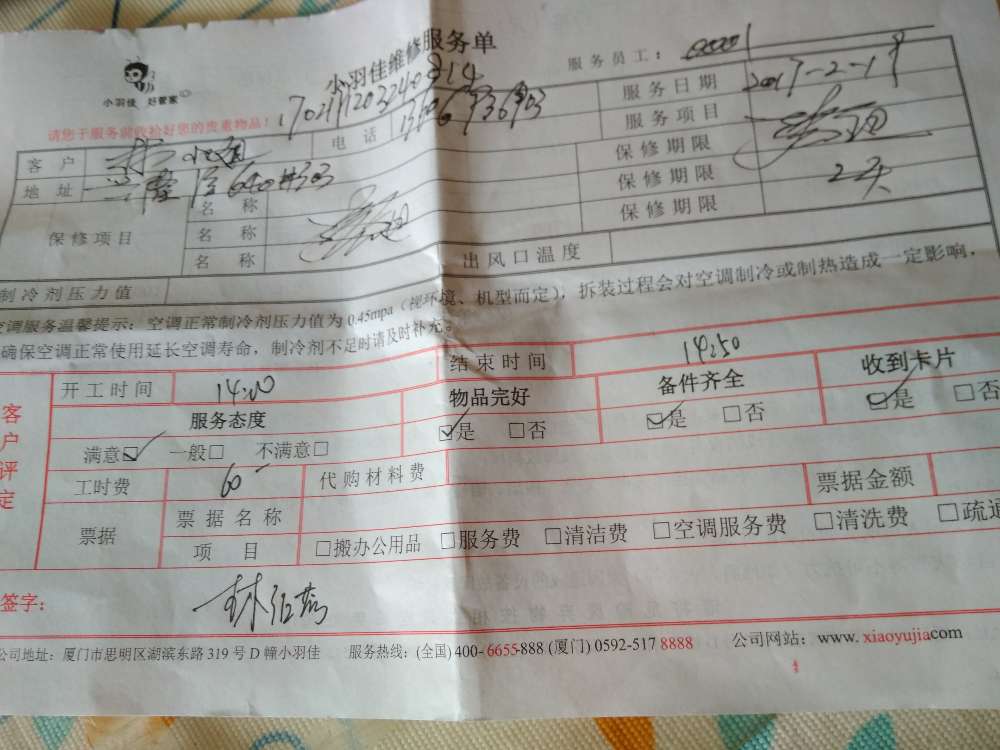 小羽佳维修服务单
小羽佳 好管家
服务员工：
请您于服务前收拾好您的贵重物品！
电话
服务日期 2017-2-19
客户
服务项目
地址
保修期限
保修项目 名称
保修期限 2天
名称
保修期限
名称
出风口温度
制冷剂压力值
空调服务温馨提示：空调正常制冷剂压力值为0.45mpa（视环境、机型而定），拆装过程会对空调制冷或制热造成一定影响，
确保空调正常使用延长空调寿命，制冷剂不足时请及时补充。
客户评定
开工时间 14:00 结束时间 14:50
服务态度 物品完好 备件齐全 收到卡片
满意☑ 一般□ 不满意□ ☑是 □否 ☑是 □否 ☑是 □否
工时费 60 代购材料费 票据金额
票据 票据名称
项目 □搬办公用品 □服务费 □清洁费 □空调服务费 □清洗费 □疏通
签字：
公司地址：厦门市思明区湖滨东路319号D幢小羽佳 服务热线：(全国)400-6655-888 (厦门)0592-517 8888 公司网站：www.xiaoyujiacom